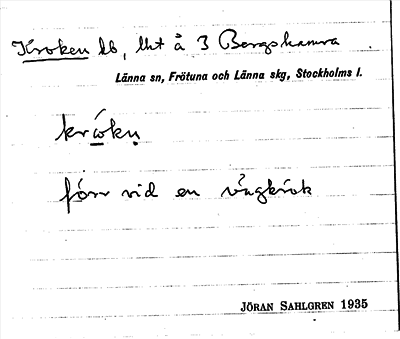 Kroken lb, lht å 3 Bergshamra
Länna sn, Frötuna och Länna skg, Stockholms l.
kró̤kṇ
förr vid en vägkrök
JÖRAN SAHLGREN 1935